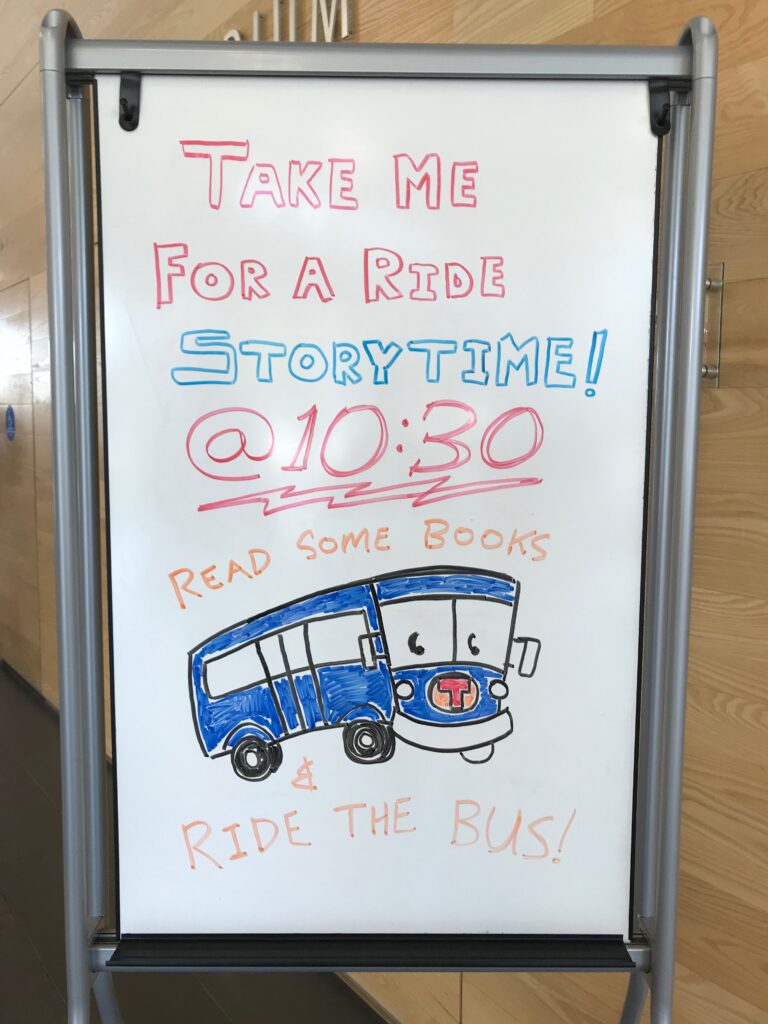 TAKE ME
FOR A RIDE
STORYTIME!
@10:30
READ SOME BOOKS
T
&
RIDE THE BUS!